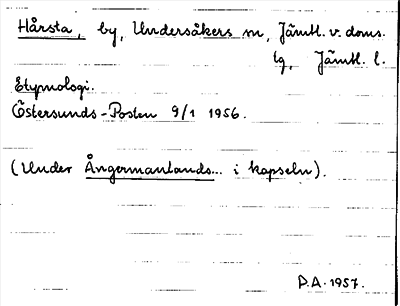 Hårsta, by, Undersåkers sn, Jämtl. v. doms.
lg, Jämtl. l.
Etymologi.
Östersunds-Posten 9/1 1956.
(Under Ångermanlands... i kapseln).
D.A. 1957.